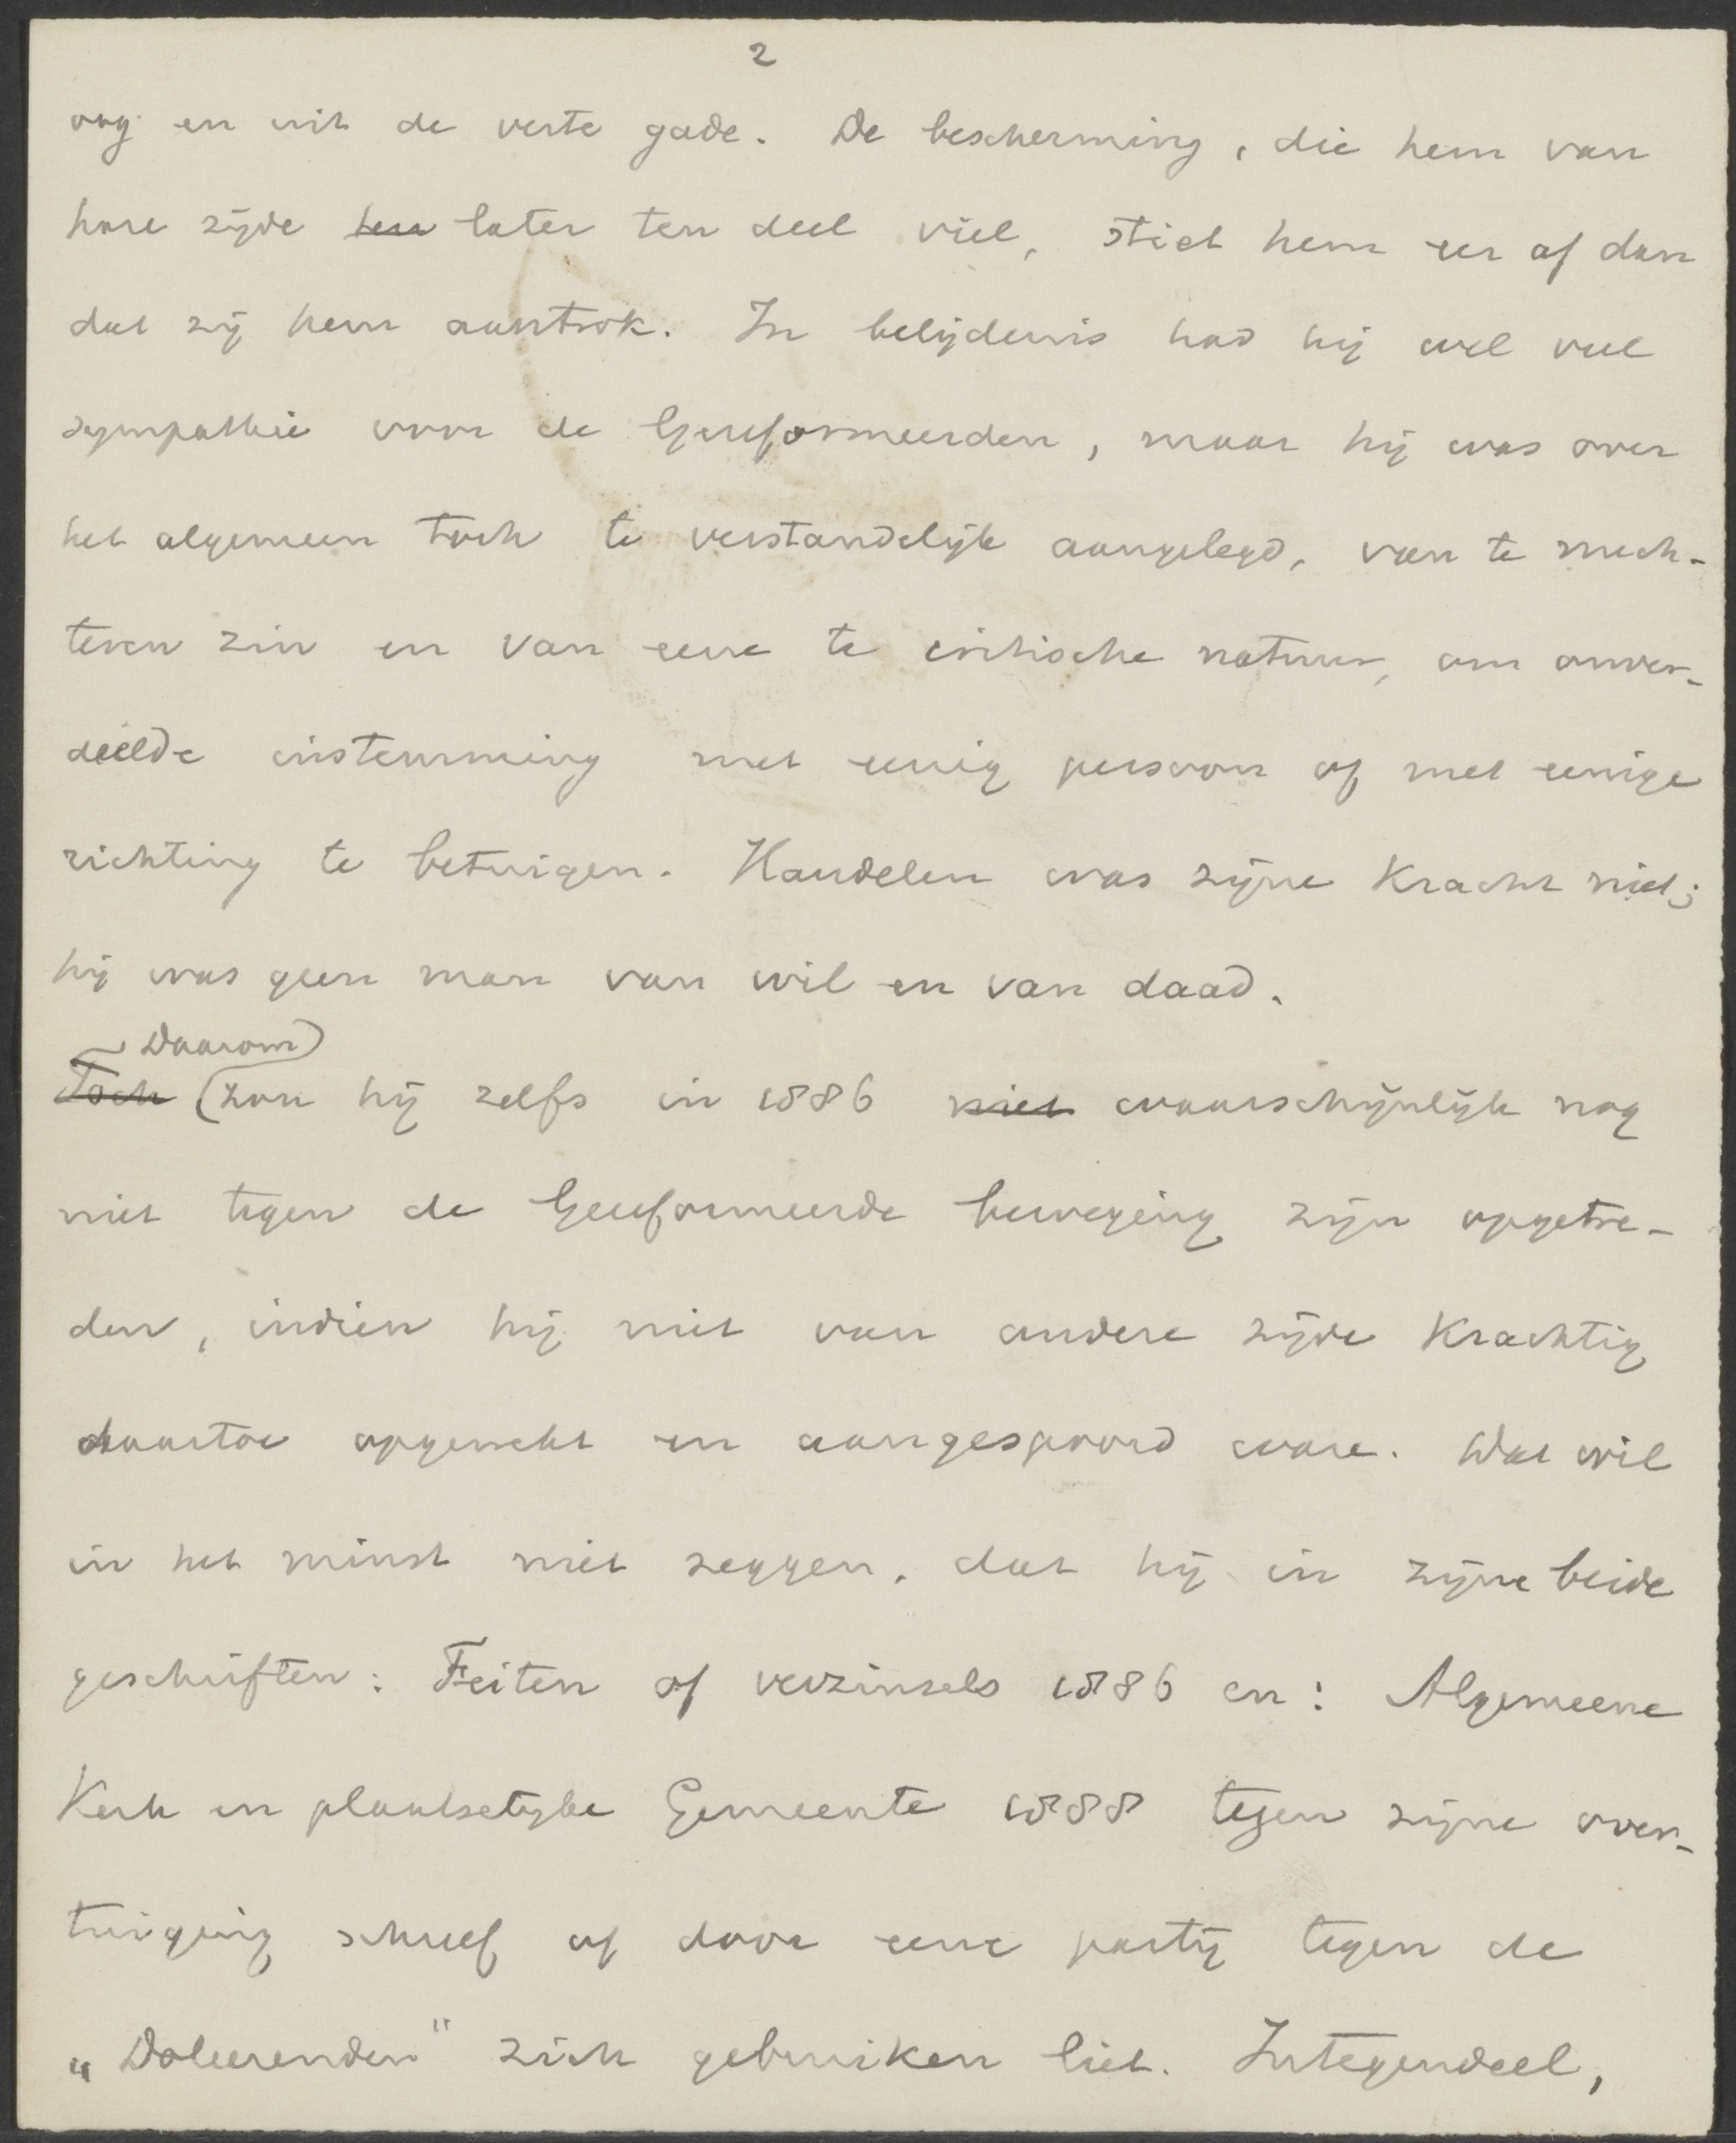 2
oog en uit de verte gade. De bescherming, die hem van
hare zijde hem later ten deel viel, stiet hem eer af dan
dat zij hem aantrok. In belijdenis had hij wel veel
sympathie voor de Gereformeerden, maar hij was over
het algemeen toch te verstandelijk aangelegd, van te nuch-
teren zin en van eene te critische natuur, om onver-
deelde instemming met eenig persoon of met eenige
richting te betuigen. Handelen was zijne kracht niet;
hij was geen man van wil en van daad.
Daarom
Toch zou hij zelfs in 1886 niet waarschijnlijk nog
niet tegen de Gereformeerde beweging zijn opgetre-
den, indien hij niet van andere zijde krachtig
daartoe opgewekt en aangespoord ware. Dat wil
in het minst niet zeggen, dat hij in zijne beide
geschriften: Feiten of verzinsels 1886 en: Algemeene
Kerk en plaatselijke Gemeente 1888 tegen zijne over-
tuiging schreef of door eene partij tegen de
„Doleerenden" zich gebruiken liet. Integendeel,